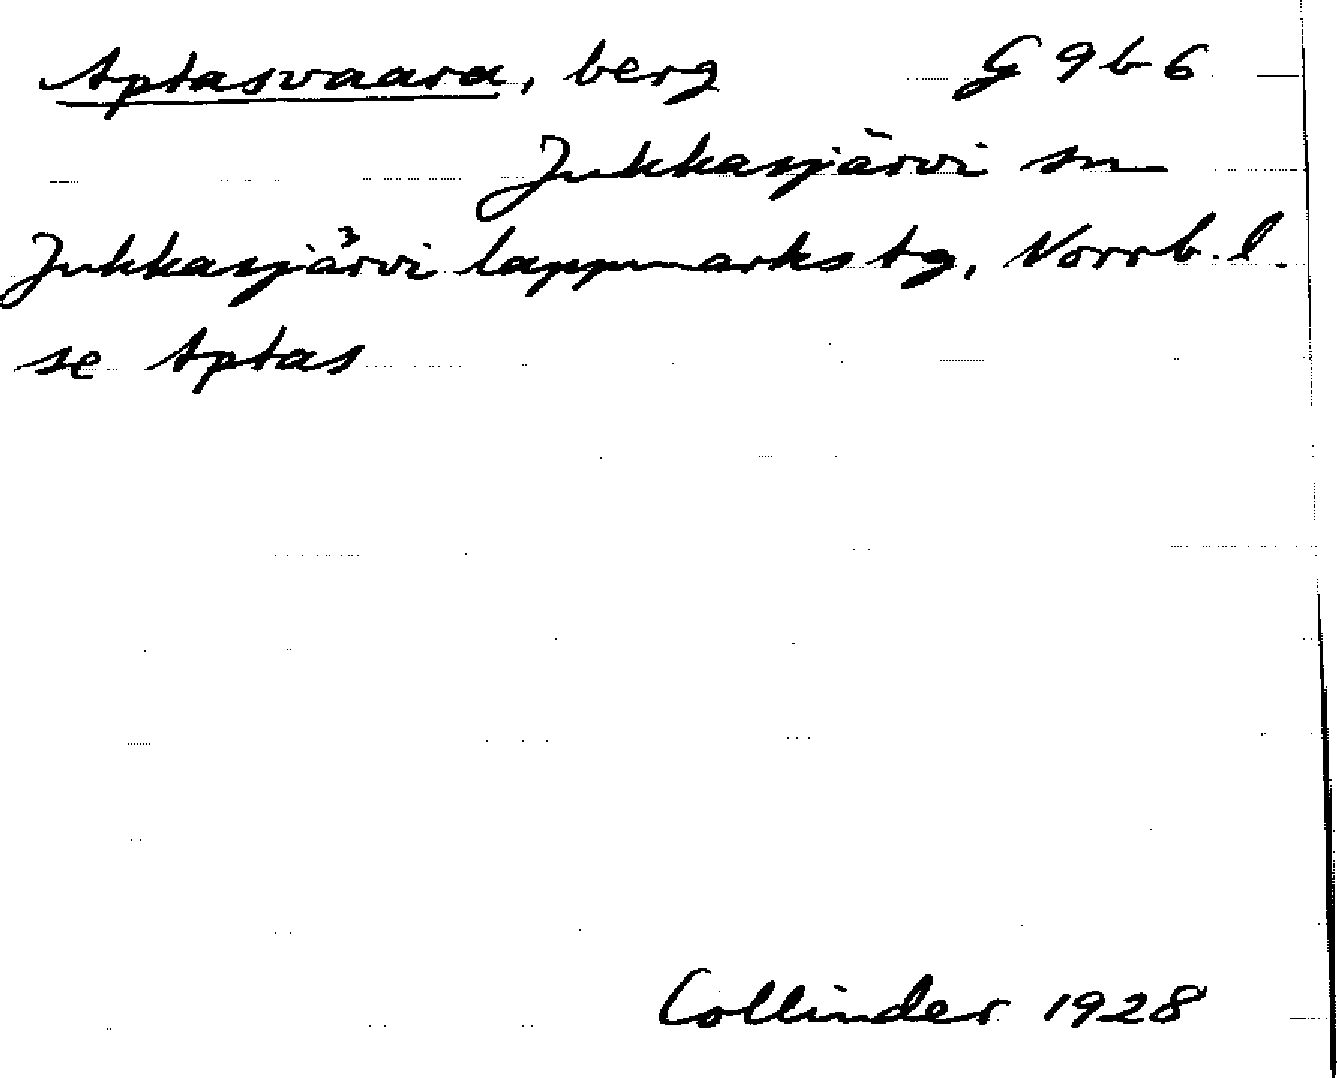 Aptasvaara, berg G 9 b 6
Jukkasjärvi sn
Jukkasjärvi lappmarks tg, Norrb. l.
se Aptas
Collinder 1928